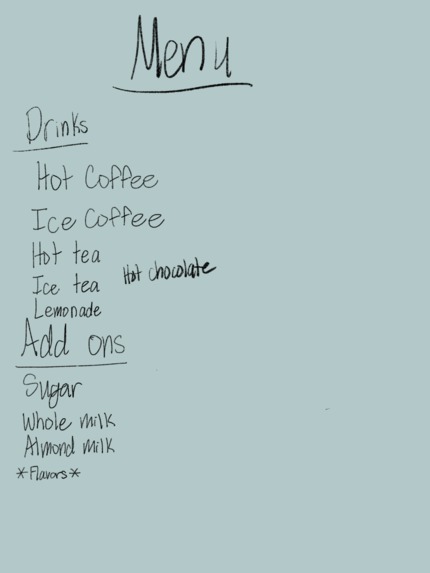 Menu
Drinks
Hot Coffee
Ice Coffee
Hot tea
Ice tea Hot chocolate
Lemonade
Add ons
Sugar
Whole milk
Almond milk
*Flavors*